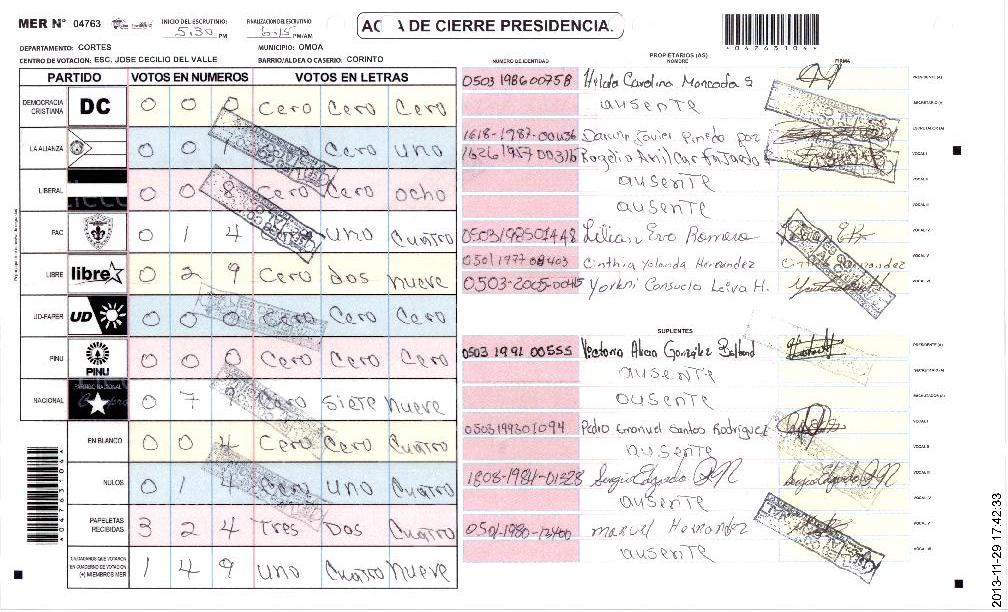 MER Nº 04763 INICIO DEL ESCRUTINIO 5:30 PM FINALIZACION DEL ESCRUTINIO 6:15 PM/AM
AC A DE CIERRE PRESIDENCIA.
*047631041*
DEPARTAMENTO: CORTES MUNICIPIO: OMOA
CENTRO DE VOTACION: ESC. JOSE CECILIO DEL VALLE BARRIO/ALDEA O CASERIO: CORINTO
PARTIDO VOTOS EN NUMEROS VOTOS EN LETRAS
DEMOCRACIA CRISTIANA DC 0 0 0 Cero Cero Cero
LA ALIANZA 0 0 1 Cero uno
LIBERAL 0 0 8 Cero Cero ocho
PAC 0 1 4 uno Cuatro
LIBRE libre 0 2 9 Cero dos nueve
UD-FAPER UD 0 0 0 Cero Cero Cero
PINU PINU 0 0 0 Cero Cero Cero
NACIONAL PARTIDO NACIONAL 0 7 9 Cero siete nueve
EN BLANCO 0 0 4 Cero Cero Cuatro
NULOS 0 1 4 Cero uno Cuatro
PAPELETAS RECIBIDAS 3 2 4 tres Dos Cuatro
CIUDADANOS QUE VOTARON EN CUADERNO DE VOTACION (+) MIEMBROS MER 1 4 9 uno Cuatro Nueve
PROPIETARIOS (AS)
NUMERO DE IDENTIDAD NOMBRE FIRMA
0503 198600758 Hilda Carolina Moncada S PRESIDENTE (A)
ausente SECRETARIO (A)
1618-1987-00636 Darwin Javier Pineda Paz ESCRUTADOR (A)
1626 1957 00316 Rogelio Amilcar Fajardo VOCAL I
ausente VOCAL II
ausente VOCAL III
0503198501448 Lilian Evo Romero VOCAL IV
0501 1977 08403 Cinthia Yolanda Hernandez VOCAL V
0503-2005-00415 Yorleni Consuelo Leiva H. VOCAL VI
SUPLENTES
0503 1991 00555 Victoria Alicia González PRESIDENTE (A)
ausente SECRETARIO (A)
ausente ESCRUTADOR (A)
0503199301094 Pedro Emanuel Santos Rodriguez VOCAL I
ausente VOCAL II
1808-1984-01528 Sergio Edgardo VOCAL III
ausente VOCAL IV
0501-1980-13400 manuel Hernandez VOCAL V
ausente VOCAL VI
*047631041*
2013-11-29 17:42:33